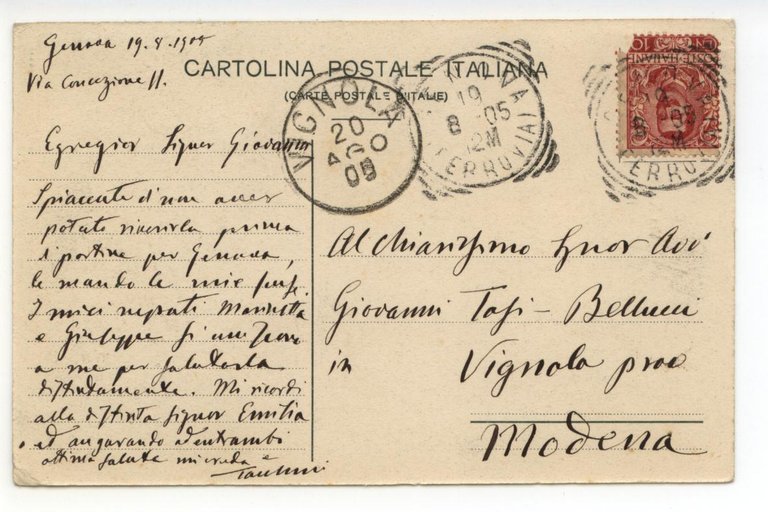 Genova 19.8.1905
Via Concezione 11.
CARTOLINA POSTALE ITALIANA
(CARTE POSTALE D'ITALIE)
VIGNOLA
20
AGO
05
19
8 05
12M
FERROVIA
POSTE ITALIANE
19
8 05
12 M
FERROVIA
Egregior Signor Giovanni
Spiacente di non aver
potuto riverirla prima
di partire per Genova,
le mando le mie
I miei nepoti Marietta
e Giuseppe si uniscono
a me per salutarla
distintamente. Mi ricordi
alla distinta signora Emilia
ed augurando ad entrambi
ottima salute mi creda
Al Chiarissimo Signor Avv
Giovanni Tosi - Bellucci
in Vignola prov
Modena